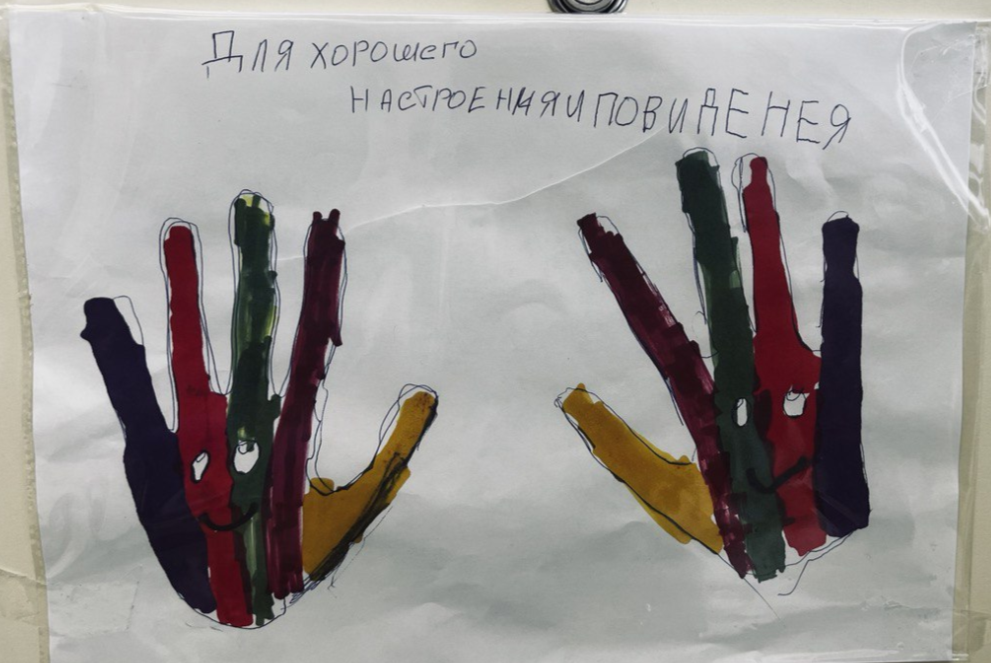 Для хорошего
НАСТРОЕНИЯ И ПОВИДЕНЕЯ